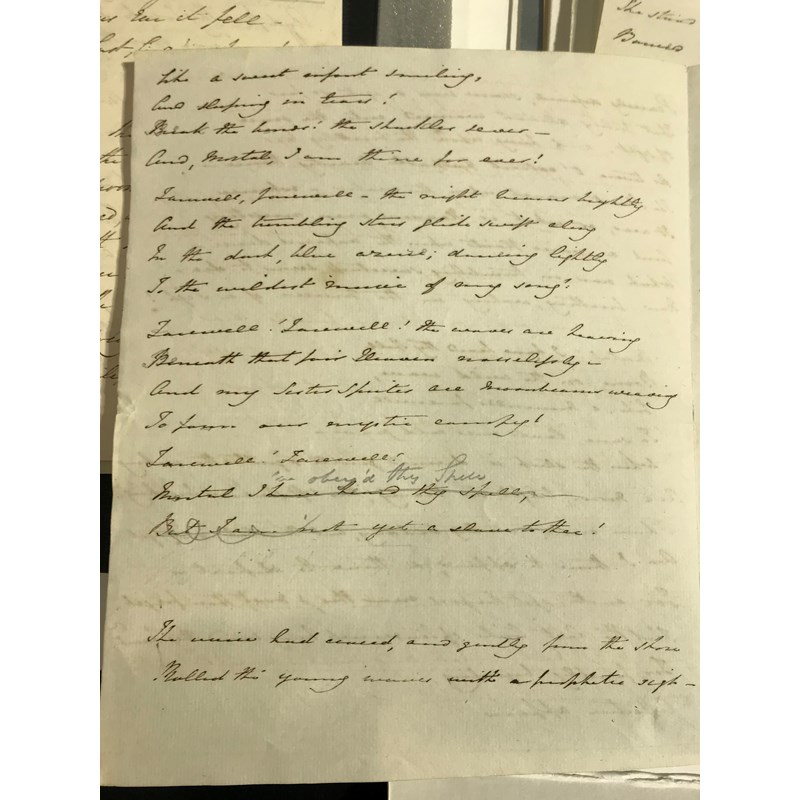 us Ear it fell -
The stri
Banne
Like a sweet infant smiling,
And sleeping in tears!
Break the bonds! the shackles sever -
And, Mortal, I am thine for ever!
Farewell, farewell - the night beams brightly
And the trembling stars glide swift along
In the dark, blue azure; dancing lightly
To the wildest music of my song!
Farewell! Farewell! the waves are heaving
Beneath that fair Heaven noiselessly -
And my Sister Sprites are Moonbeams weaving
To form our mystic canopy!
Farewell! Farewell!
've obey'd thy Spell
Mortal I have heard thy spell,
But I am not yet a slave to thee!
The voice had ceased, and gently from the shore
Rolled the young waves with a prophetic sigh -